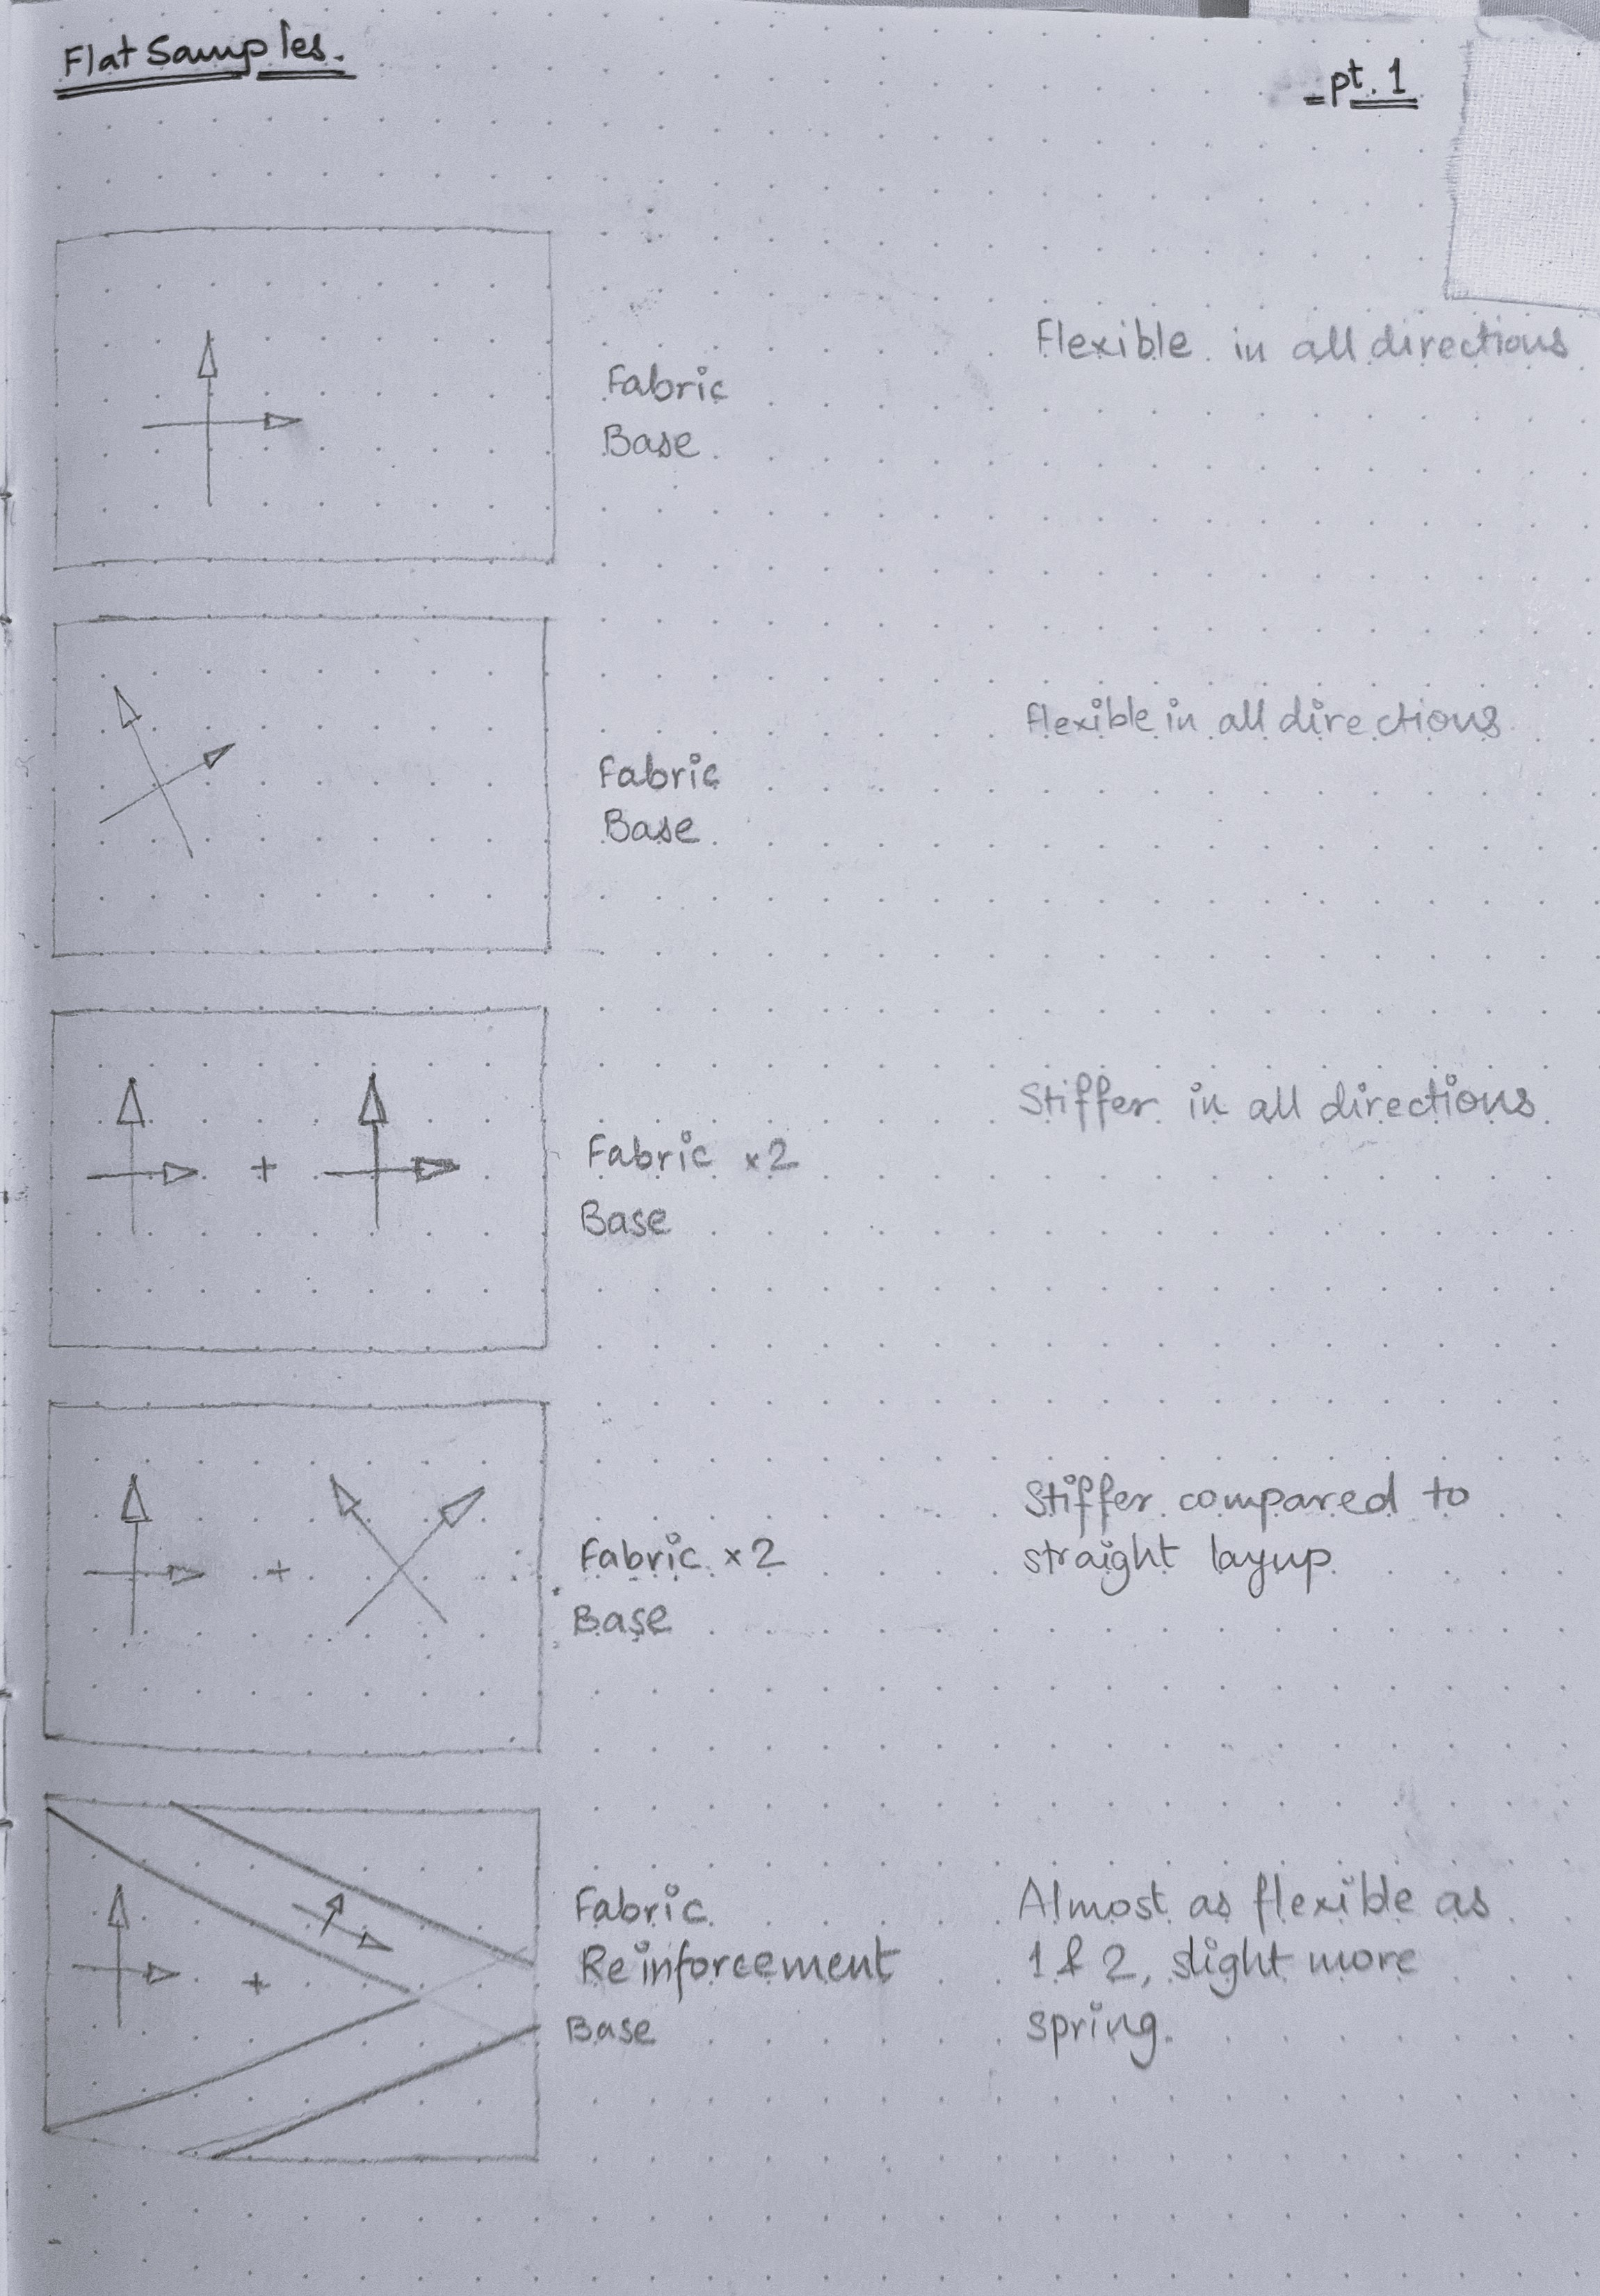 Flat Samples.
pt. 1
Flexible in all directions
Fabric
Base
Flexible in all directions
Fabric
Base
Stiffer in all directions
Fabric x2
Base
Stiffer compared to
straight layup
Fabric x2
Base
+
+
Fabric
Reinforcement
Base
+
Almost as flexible as
1 & 2, slight more
spring.